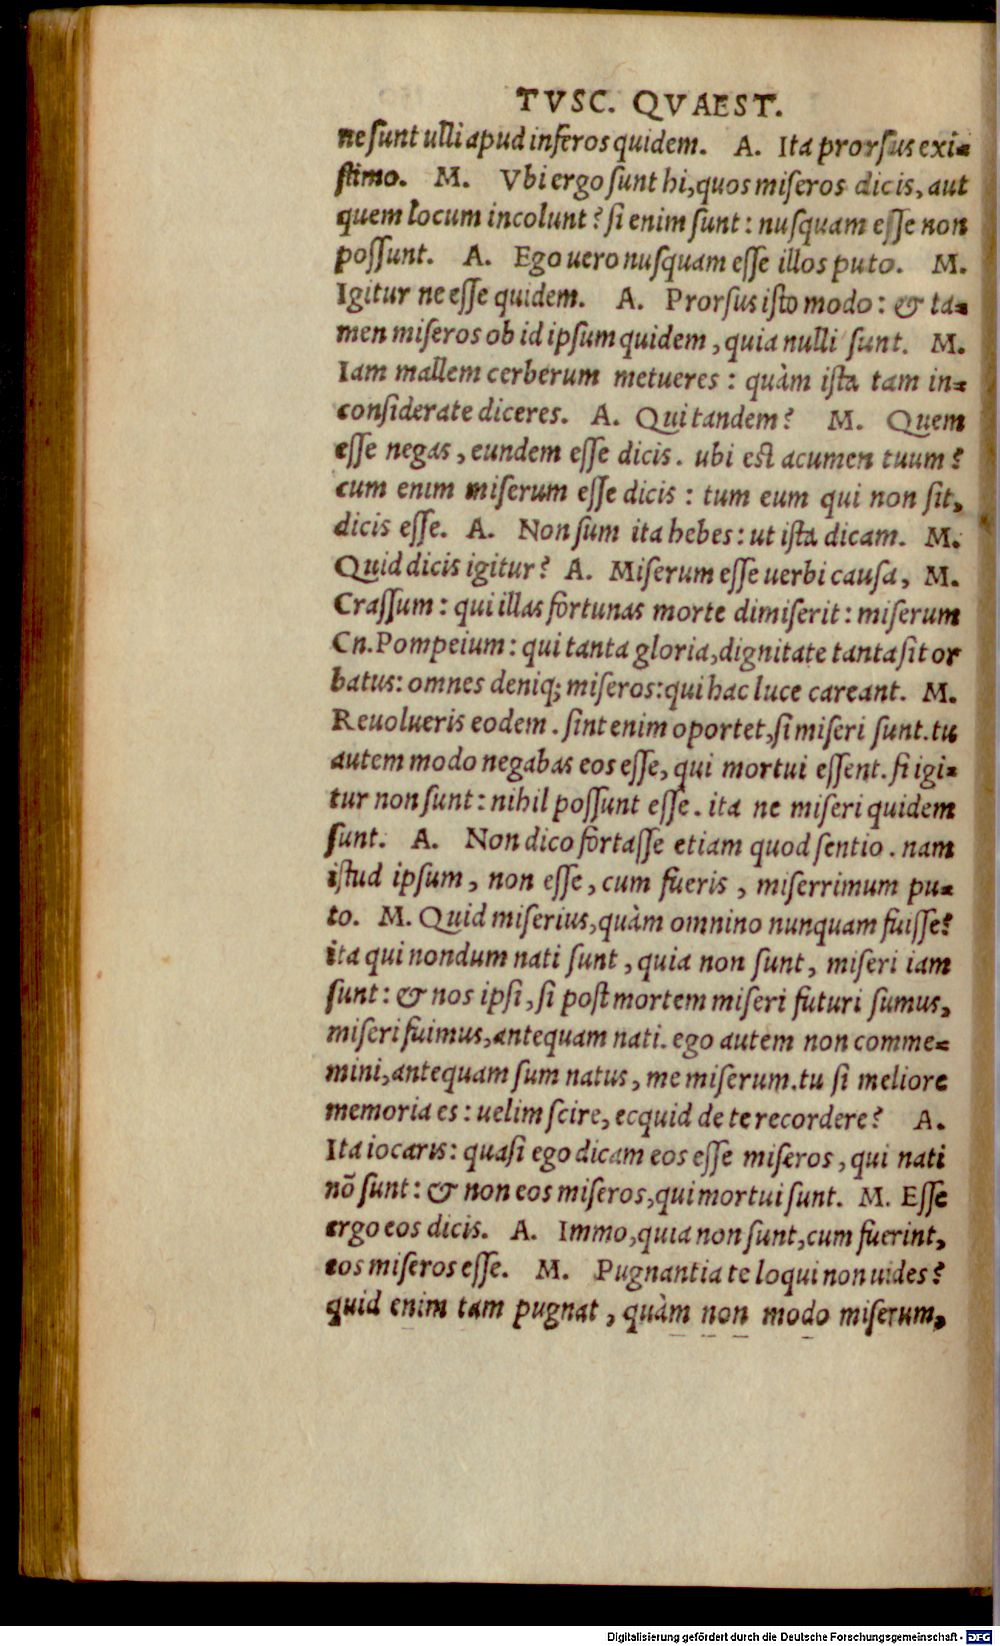 TVSC. QVAEST.
ne sunt ulli apud inferos quidem. A. Ita prorsus exi-
stimo. M. Vbi ergo sunt hi, quos miseros dicis, aut
quem locum incolunt? si enim sunt: nusquam esse non
possunt. A. Ego uero nusquam esse illos puto. M.
Igitur ne esse quidem. A. Prorsus isto modo: & ta-
men miseros ob id ipsum quidem, quia nulli sunt. M.
Iam mallem cerberum metueres: quàm ista tam in-
considerate diceres. A. Qui tandem? M. Quem
esse negas, eundem esse dicis. ubi est acumen tuum?
cum enim miserum esse dicis: tum eum qui non sit,
dicis esse. A. Non sum ita hebes: ut ista dicam. M.
Quid dicis igitur? A. Miserum esse uerbi causa, M.
Crassum: qui illas fortunas morte dimiserit: miserum
Cn. Pompeium: qui tanta gloria, dignitate tanta sit or
batus: omnes deniq; miseros: qui hac luce careant. M.
Reuolueris eodem. sint enim oportet, si miseri sunt. tu
autem modo negabas eos esse, qui mortui essent. si igi-
tur non sunt: nihil possunt esse. ita ne miseri quidem
sunt. A. Non dico fortasse etiam quod sentio. nam
istud ipsum, non esse, cum fueris, miserrimum pu-
to. M. Quid miserius, quàm omnino nunquam fuisse?
ita qui nondum nati sunt, quia non sunt, miseri iam
sunt: & nos ipsi, si post mortem miseri futuri sumus,
miseri fuimus, antequam nati. ego autem non comme-
mini, antequam sum natus, me miserum. tu si meliore
memoria es: uelim scire, ecquid de te recordere? A.
Ita iocaris: quasi ego dicam eos esse miseros, qui nati
nō sunt: & non eos miseros, qui mortui sunt. M. Esse
ergo eos dicis. A. Immo, quia non sunt, cum fuerint,
eos miseros esse. M. Pugnantia te loqui non uides?
quid enim tam pugnat, quàm non modo miserum,
Digitalisierung gefördert durch die Deutsche Forschungsgemeinschaft - DFG